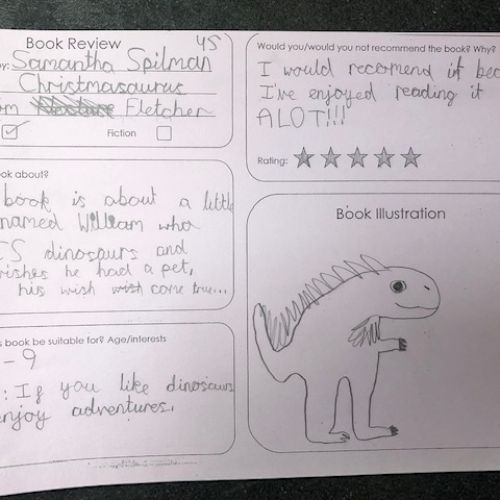 Book Review
4S
y: Samantha Spilman
Christmasaurus
om Fletcher
Fiction
ook about?
book is about a little
named William who
ES dinosaurs and
wishes he had a pet,
his wish wish come true...
s book be suitable for? Age/interests
- 9
: If you like dinosaurs
enjoy adventures.
Would you/would you not recommend the book? Why?
I would recomend it bec
I've enjoyed reading it
ALOT!!!
Rating:
Book Illustration